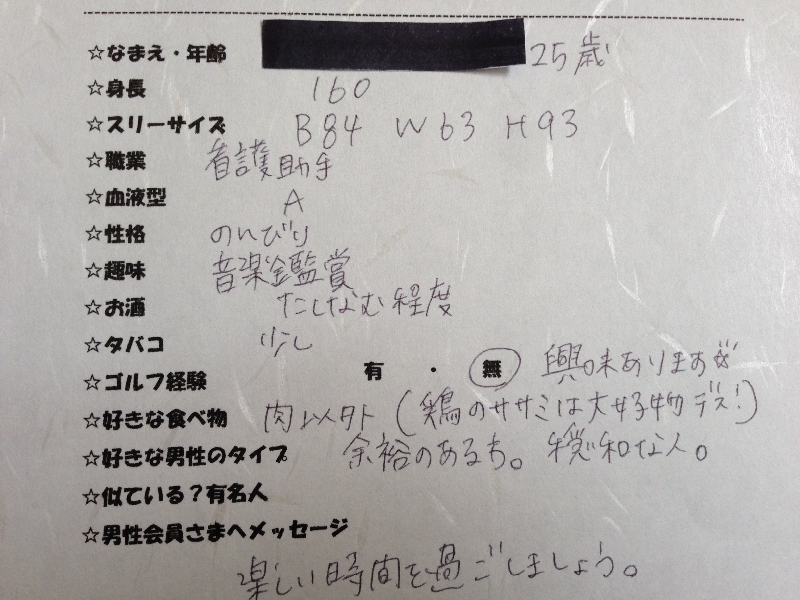 ☆なまえ・年齢 25歳
☆身長 160
☆スリーサイズ B84 W63 H93
☆職業 看護助手
☆血液型 A
☆性格 のんびり
☆趣味 音楽鑑賞
☆お酒 たしなむ程度
☆タバコ 少し
☆ゴルフ経験 有・無 興味あります☆
☆好きな食べ物 肉以外(鶏のササミは大好物デス!)
☆好きな男性のタイプ 余裕のある方。穏和な人。
☆似ている?有名人
☆男性会員さまへメッセージ
楽しい時間を過ごしましょう。